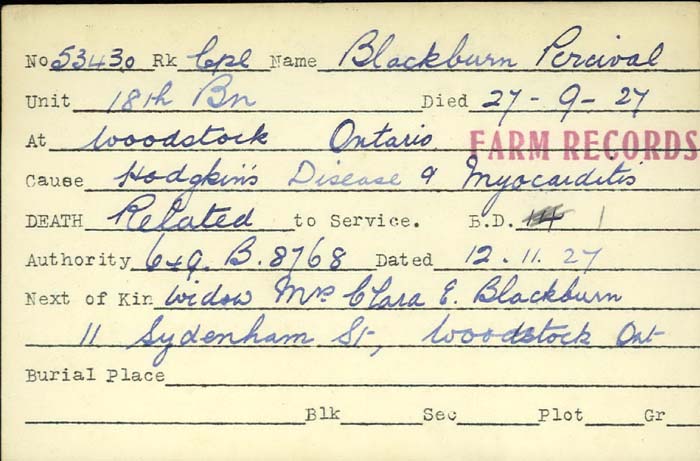 No 53430 Rk Cpl Name Blackburn Percival
Unit 18th Bn Died 27-9-27
At Woodstock Ontario FARM RECORDS
Cause Hodgkin's Disease & Myocarditis
DEATH Related to Service. B.D. 1
Authority 649. B. 8768 Dated 12.11.27
Next of Kin widow Mrs Clara E. Blackburn
11 Sydenham St, Woodstock Ont
Burial Place
Blk Sec Plot Gr